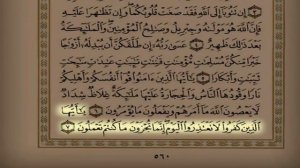 ٣ إِن تَتُوبَآ إِلَى ٱللَّهِ فَقَدْ صَغَتْ قُلُوبُكُمَا وَإِن تَظَٰهَرَا عَلَيْهِ
فَإِنَّ ٱللَّهَ هُوَ مَوْلَىٰهُ وَجِبْرِيلُ وَصَٰلِحُ ٱلْمُؤْمِنِينَ وَٱلْمَلَٰٓئِكَةُ
بَعْدَ ذَٰلِكَ ظَهِيرٌ ٤ عَسَىٰ رَبُّهُۥٓ إِن طَلَّقَكُنَّ أَن يُبْدِلَهُۥٓ أَزْوَٰجًا
خَيْرًا مِّنكُنَّ مُسْلِمَٰتٍ مُّؤْمِنَٰتٍ قَٰنِتَٰتٍ تَٰٓئِبَٰتٍ عَٰبِدَٰتٍ سَٰٓئِحَٰتٍ
ثَيِّبَٰتٍ وَأَبْكَارًا ٥ يَٰٓأَيُّهَا ٱلَّذِينَ ءَامَنُوا۟ قُوٓا۟ أَنفُسَكُمْ وَأَهْلِيكُمْ
نَارًا وَقُودُهَا ٱلنَّاسُ وَٱلْحِجَارَةُ عَلَيْهَا مَلَٰٓئِكَةٌ غِلَاظٌ شِدَادٌ
لَّا يَعْصُونَ ٱللَّهَ مَآ أَمَرَهُمْ وَيَفْعَلُونَ مَا يُؤْمَرُونَ ٦ يَٰٓأَيُّهَا
ٱلَّذِينَ كَفَرُوا۟ لَا تَعْتَذِرُوا۟ ٱلْيَوْمَ إِنَّمَا تُجْزَوْنَ مَا كُنتُمْ تَعْمَلُونَ ٧
٥٦٠